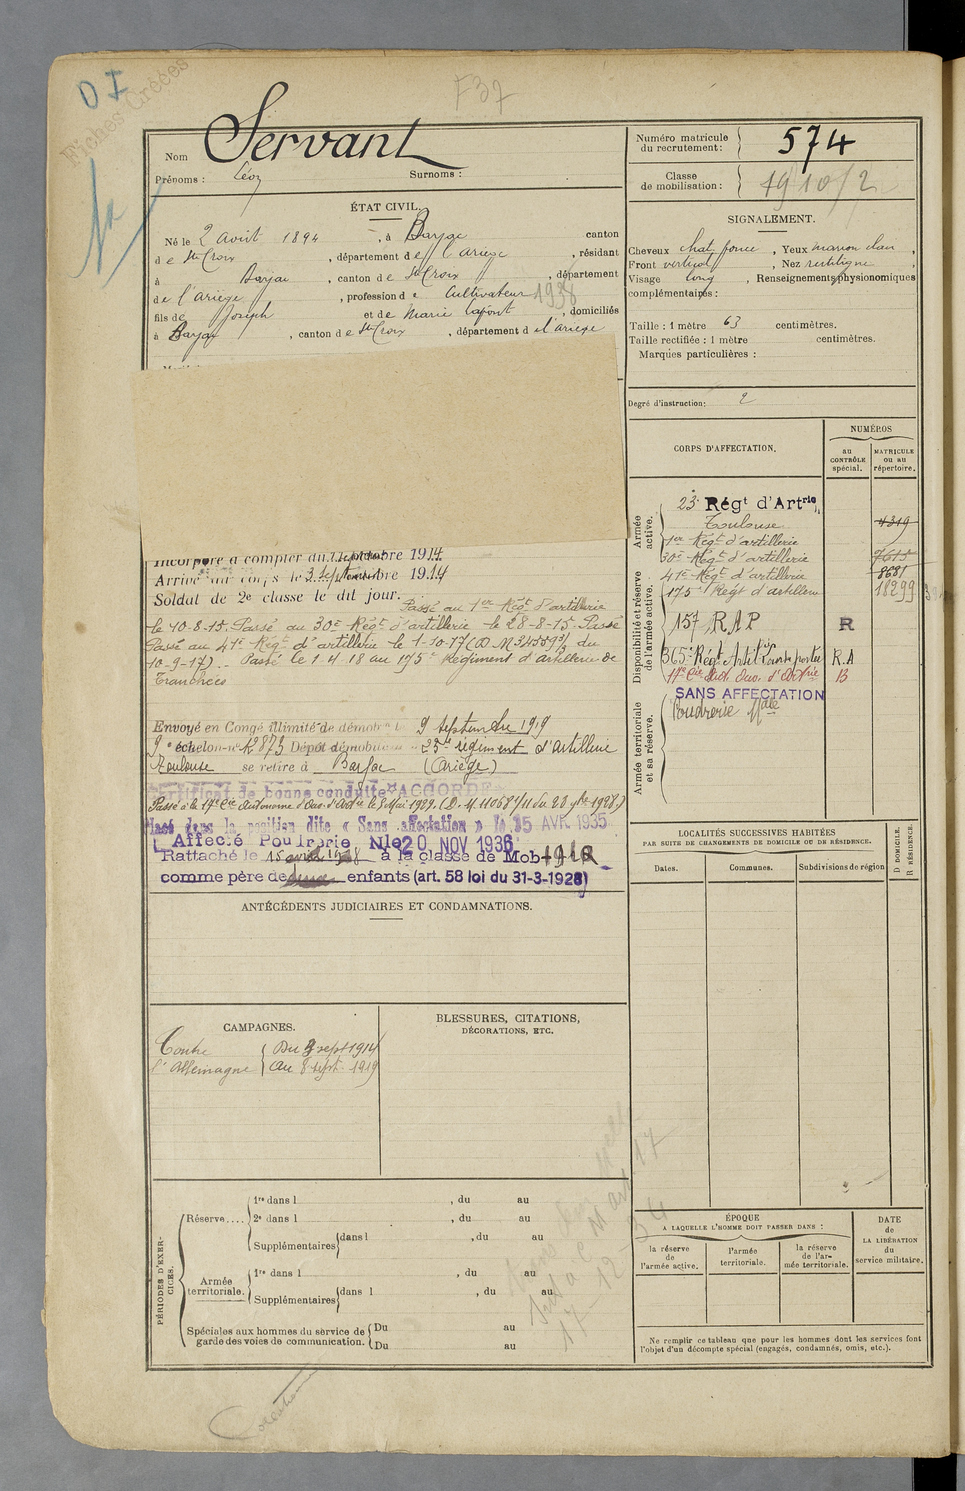 D I
Fiches Créées
F37
Nom Servant
Prénoms : Léon Surnoms :
Numéro matricule du recrutement : 574
Classe de mobilisation : 1910/2
ÉTAT CIVIL.
Né le 2 Août 1894, à Barjac canton
de Ste Croix, département de l'Ariège, résidant
à Barjac, canton de Ste Croix, département
de l'Ariège, profession de Cultivateur 1938
fils de Joseph et de Marie Lafont, domiciliés
à Barjac, canton de Ste Croix, département de l'Ariège
SIGNALEMENT.
Cheveux chat. foncé, Yeux marron clair,
Front vertical, Nez rectiligne,
Visage long, Renseignements physionomiques
complémentaires :
Taille : 1 mètre 63 centimètres.
Taille rectifiée : 1 mètre centimètres.
Marques particulières :
Degré d'instruction : 2
Incorporé à compter du 1914
Arrivé au corps le 3 septembre 1914
Soldat de 2e classe le dit jour.
Passé au 1er Régt d'artillerie
le 10-8-15. Passé au 30e Régt d'artillerie le 28-8-15. Passé
Passé au 41e Régt d'artillerie le 1-10-17 (D.M. 345593/ du
10-9-17). Passé le 1.4.18 au 175e Régiment d'artillerie de
Tranchées
Envoyé en Congé illimité de démob 9 septembre 1919
9e échelon no K2873 Dépôt démobilisateur 23e régiment d'artillerie
Toulouse se retire à Barjac (Ariège)
Certificat de bonne conduite "ACCORDÉ"
Passé à la 17e Cie Autonome d'Ouv. d'Artie le 5 Mai 1929. (D.M. 11068 /11 du 20 9bre 1928.)
Placé dans la position dite « Sans affectation » le 15 AVR. 1935
Affecté Poudrerie Nle 20 NOV 1936
Rattaché le 15 avril à la classe de Mob 1910
comme père de enfants (art. 58 loi du 31-3-1928)
CORPS D'AFFECTATION.
NUMÉROS
au CONTRÔLE spécial.
MATRICULE ou au répertoire.
Armée active.
23e Régt d'Artrie
Toulouse 4319
1er Régt d'artillerie
30e Régt d'artillerie 7611
41e Régt d'artillerie 8681
175e Régt d'artillerie 18299
Disponibilité et réserve de l'armée active.
157 RAP R
365e Régt Artill. portée R.A
17e Cie Aut. Ouv. d'Artrie B
SANS AFFECTATION
Poudrerie Nale
Armée territoriale et sa réserve.
LOCALITÉS SUCCESSIVES HABITÉES
PAR SUITE DE CHANGEMENTS DE DOMICILE OU DE RÉSIDENCE.
Dates. Communes. Subdivisions de région
D DOMICILE.
R RÉSIDENCE.
ANTÉCÉDENTS JUDICIAIRES ET CONDAMNATIONS.
CAMPAGNES.
Contre l'Allemagne
Du 3 sept 1914
au 8 sept. 1919
BLESSURES, CITATIONS,
DÉCORATIONS, ETC.
PÉRIODES D'EXERCICES.
Réserve....
1re dans l , du au
2e dans l , du au
Supplémentaires dans l , du au
Armée territoriale.
1re dans l , du au
Supplémentaires dans l , du au
Spéciales aux hommes du service de garde des voies de communication.
Du au
Du au
17-12-34
ÉPOQUE
A LAQUELLE L'HOMME DOIT PASSER DANS :
la réserve de l'armée active.
l'armée territoriale.
la réserve de l'armée territoriale.
DATE de LA LIBÉRATION du service militaire.
Ne remplir ce tableau que pour les hommes dont les services font
l'objet d'un décompte spécial (engagés, condamnés, omis, etc.).